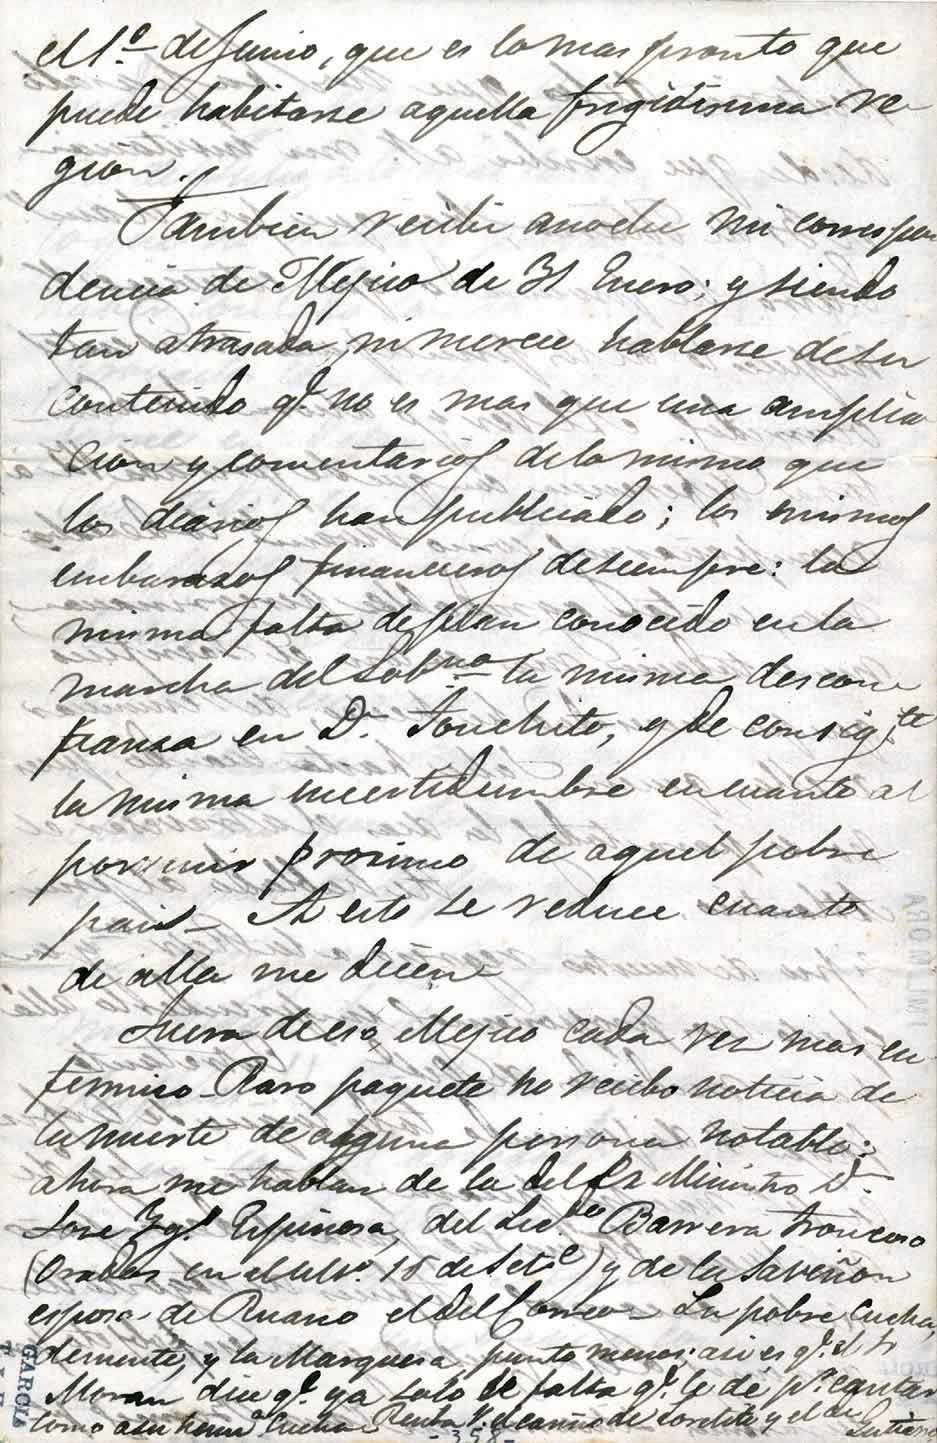 el 1º de Junio, que es lo mas pronto que
puede habitarse aquella frigidísima re-
gion.
Tambien recibi anoche mi correspon
dencia de Mejico de 31 Enero; y siendo
tan atrasada, ni merece hablarse de su
contenido q.e no es mas que una amplia
cion y comentarios de lo mismo que
los diarios han publicado; los mismos
embarazos financieros de siempre: la
misma falta de plan conocido en la
marcha del Gob.no la misma descon
fianza en D. Juuchito, y de consig.te
la misma incertidumbre en cuanto al
porvenir proximo de aquel pobre
pais_ A esto se reduce cuanto
de alla me dicen_
Fuera de eso, Mejico cada vez mas en
fermizo_ Raro paquete no recibo noticia de
la muerte de alguna persona notable;
ahora me hablan de la del Ex Ministro D.
José Ygº Espinosa, del Lic.do Barrera Troncoso
(Orador en el ult.º 16 de Set.e) y de la Saviñon
esposa de Ruano el del Correo_ La pobre Cucha,
demente, y la Marquesa, punto menos; asi es q.e el Sr
Moran dice q.e ya solo le falta q.e le dé p.r cantar
como a su herm.a Cucha_ Recba V. el cariño de Lorelito y el de
-358-
GARCIA